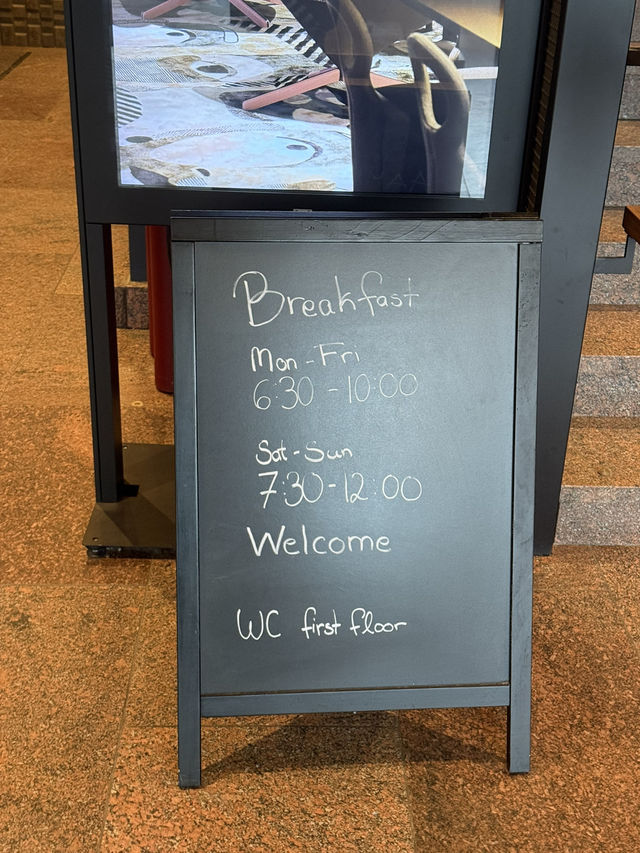 Breakfast
Mon-Fri
6:30 - 10:00
Sat-Sun
7:30-12:00
Welcome
WC first floor